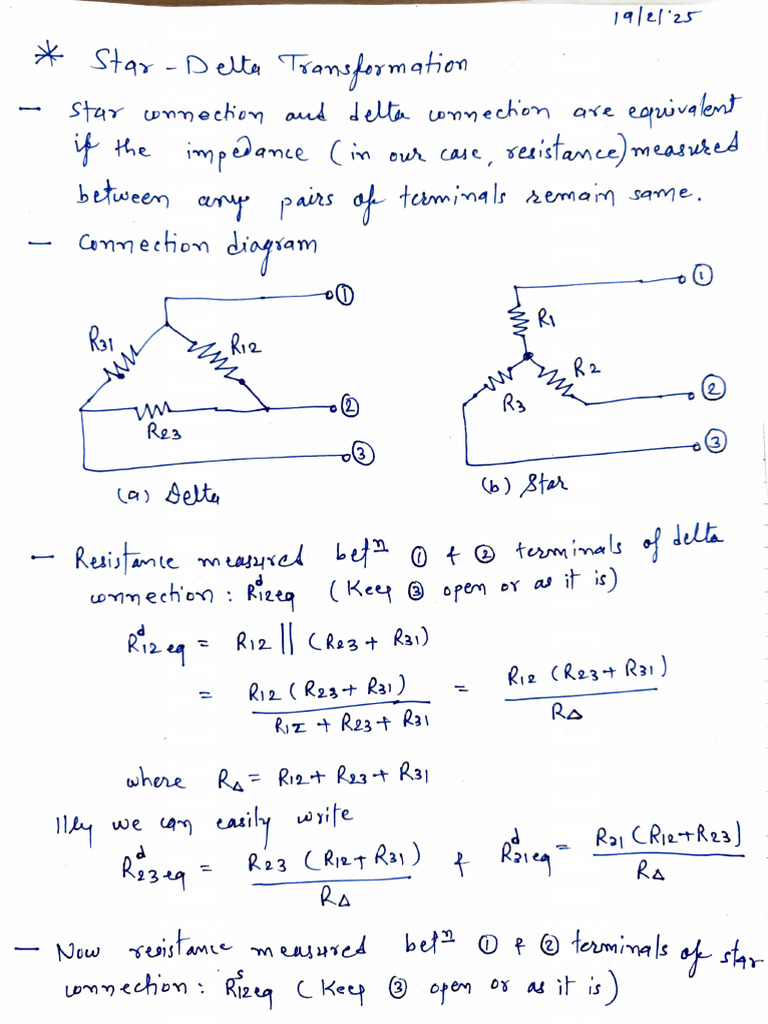 19/2/'25
* Star - Delta Transformation
- Star connection and delta connection are equivalent
if the impedance (in our case, resistance) measured
between any pairs of terminals remain same.
- Connection diagram
①
R31 R12
②
R23
③
(a) Delta
①
R1
R2
②
R3
③
(b) Star
- Resistance measured betⁿ ① & ② terminals of delta
connection : R^d_12eq (Keep ③ open or as it is)
R^d_12eq = R12 || (R23 + R31)
= R12 (R23 + R31) / R12 + R23 + R31 = R12 (R23 + R31) / R∆
where R∆ = R12 + R23 + R31
|||ly we can easily write
R^d_23eq = R23 (R12 + R31) / R∆ & R^d_31eq = R31 (R12 + R23) / R∆
- Now resistance measured betⁿ ① & ② terminals of star
connection : R^s_12eq (Keep ③ open or as it is)